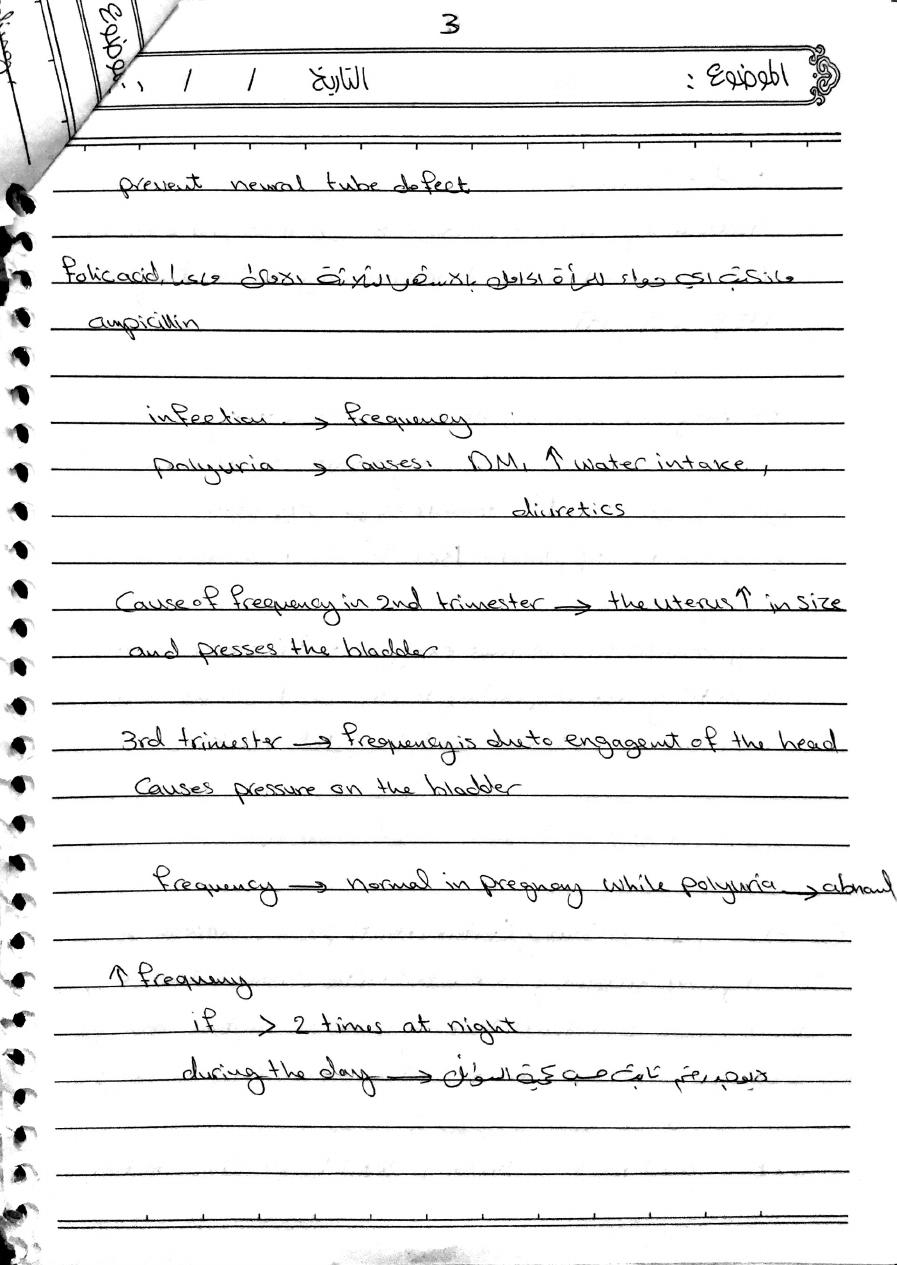 3
الموضوع :
التاريخ / /
prevent neural tube defect
مانكتب اي دواء للمرأة الحامل بالاشهر الثلاثة الاولى ماعدا folic acid,
ampicillin
infection → frequency
polyuria → Causes: DM, ↑ water intake,
diuretics
Cause of frequency in 2nd trimester → the uterus ↑ in size
and presses the bladder
3rd trimester → frequency is due to engagemt of the head
Causes pressure on the bladder
frequency → normal in pregnany while polyuria → abnaml
↑ frequeny
if > 2 times at night
during the day → لايوجد رقم ثابت حسب كمية السوائل